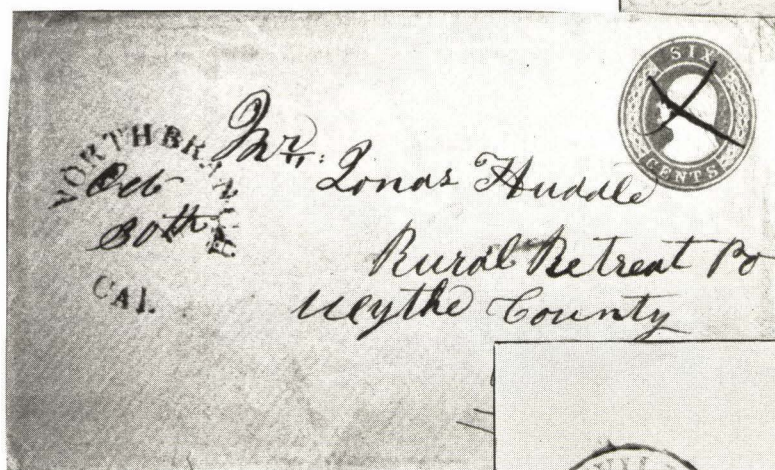 SIX
CENTS
NORTH BRANCH
Oct
30th
CAL.
Mr. Jonas Huddle
Rural Retreat Po
Wythe County